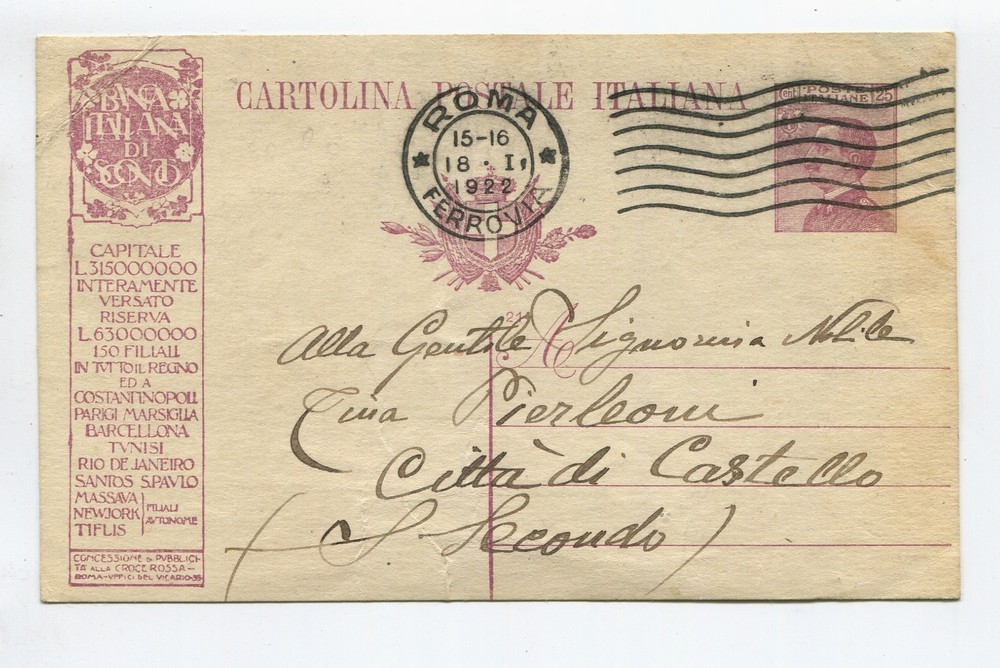 BANCA
ITALIANA
DI
SCONTO
CAPITALE
L.315000000
INTERAMENTE
VERSATO
RISERVA
L.63000000
150 FILIALI
IN TVTTO IL REGNO
ED A
COSTANTINOPOLI
PARIGI MARSIGLIA
BARCELLONA
TVNISI
RIO DE JANEIRO
SANTOS S.PAVLO
MASSAVA
NEWJORK
TIFLIS
FILIALI
AVTONOME
CONCESSIONE DI PVBBLICI-
TÀ ALLA CROCE ROSSA-
ROMA-VFFICI DEL VICARIO-35
CARTOLINA POSTALE ITALIANA
ROMA
15-16
18·I,
1922
FERROVIA
cent POSTE 25
ITALIANE
21
Alla Gentile Signorina Nobile
Tina Pierleoni
Città di Castello
(S. Secondo)